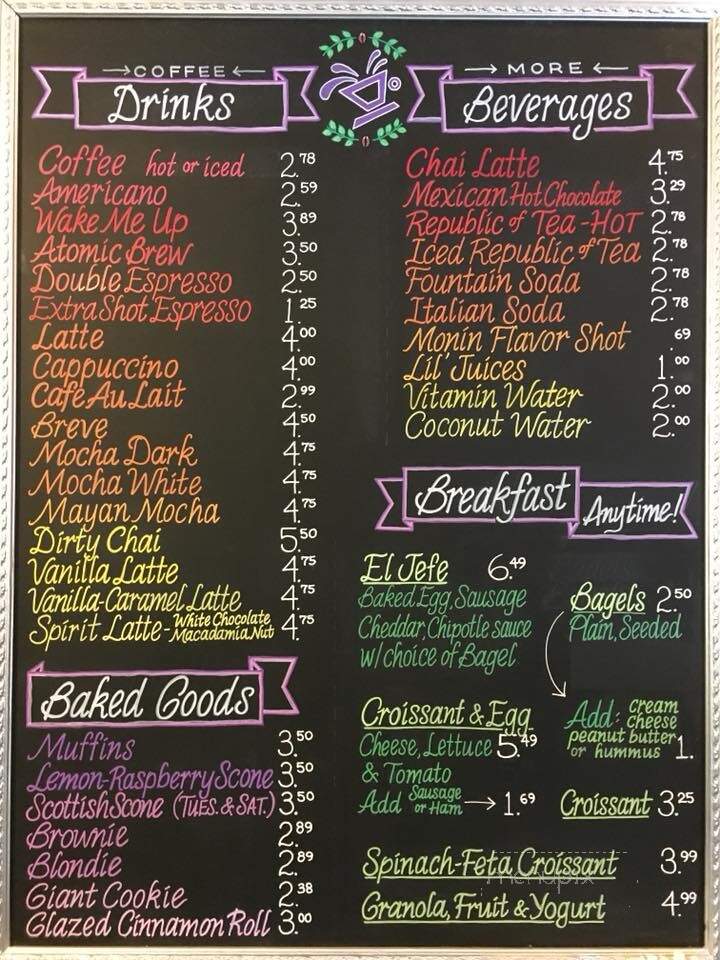 COFFEE
Drinks
Coffee hot or iced 2.78
Americano 2.59
Wake Me Up 3.89
Atomic Brew 3.50
Double Espresso 2.50
Extra Shot Espresso 1.25
Latte 4.00
Cappuccino 4.00
Café Au Lait 2.99
Breve 4.50
Mocha Dark 4.75
Mocha White 4.75
Mayan Mocha 4.75
Dirty Chai 5.50
Vanilla Latte 4.75
Vanilla-Caramel Latte 4.75
Spirit Latte - White Chocolate
Macadamia Nut 4.75
Baked Goods
Muffins 3.50
Lemon-Raspberry Scone 3.50
Scottish Scone (TUES. & SAT.) 3.50
Brownie 2.89
Blondie 2.89
Giant Cookie 2.38
Glazed Cinnamon Roll 3.00
MORE
Beverages
Chai Latte 4.75
Mexican Hot Chocolate 3.29
Republic of Tea - HOT 2.78
Iced Republic of Tea 2.78
Fountain Soda 2.78
Italian Soda 2.78
Monin Flavor Shot .69
Lil' Juices 1.00
Vitamin Water 2.00
Coconut Water 2.00
Breakfast
Anytime!
El Jefe 6.49
Baked Egg, Sausage
Cheddar, Chipotle sauce
w/ choice of Bagel
Bagels 2.50
Plain, Seeded
Add: cream
cheese
peanut butter
or hummus 1.
Croissant & Egg
Cheese, Lettuce 5.49
& Tomato
Add Sausage
or Ham 1.69
Croissant 3.25
Spinach-Feta Croissant 3.99
menupix
Granola, Fruit & Yogurt 4.99